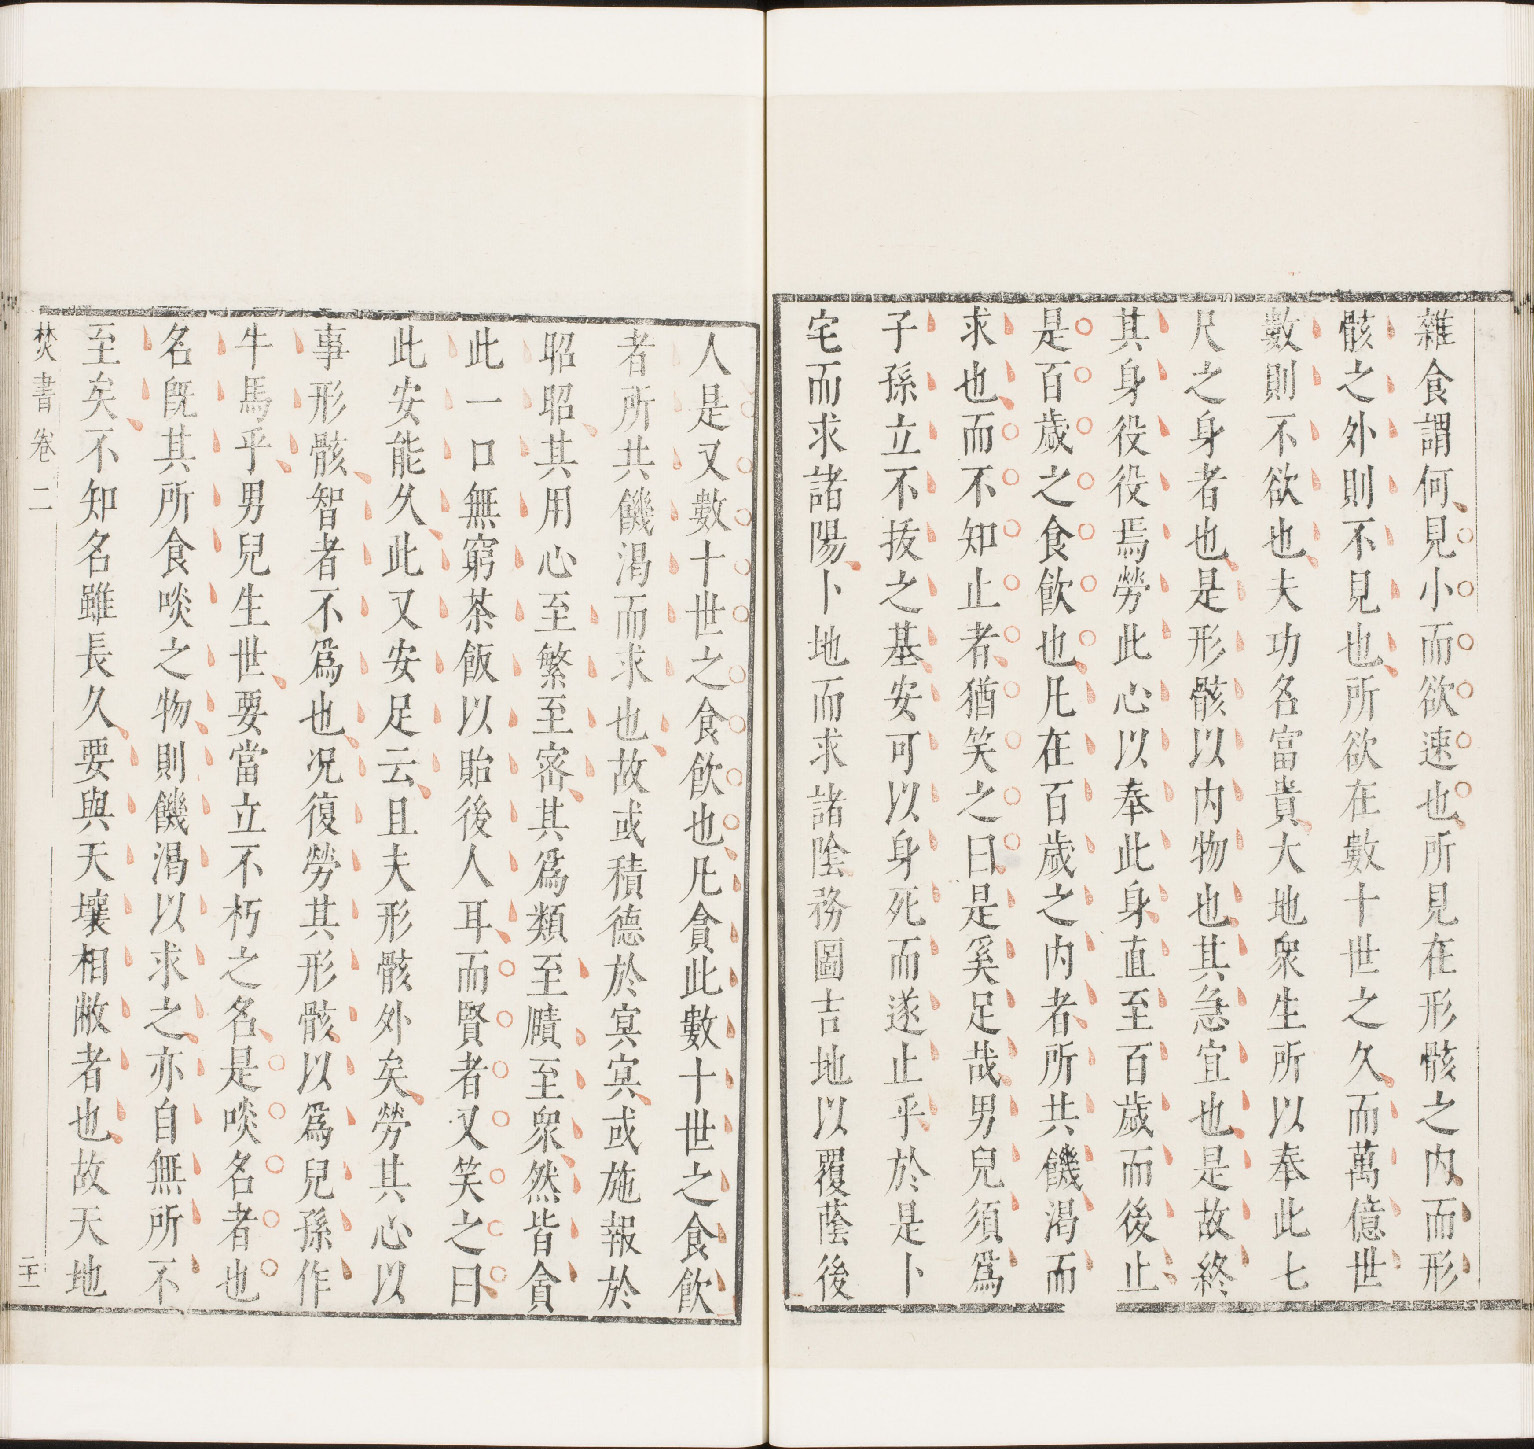 雜食謂何見小而欲速也所見在形骸之内而形
骸之外則不見也所欲在數十世之久而萬億世
數則不欲也夫功名富貴大地衆生所以奉此七
尺之身者也是形骸以内物也其急宜也是故終
其身役役焉勞此心以奉此身直至百歲而後止
是百歲之食飲也凡在百歲之内者所共饑渴而
求也而不知止者猶笑之曰是奚足哉男兒須爲
子孫立不抜之基安可以身死而遂止乎於是卜
宅而求諸陽卜地而求諸隂務圖吉地以覆蔭後
人是又數十世之食飲也凡貪此數十世之食飲
者所共饑渴而求也故或積德於㝠㝠或施報於
昭昭其用心至繁至宻其爲類至賾至衆然皆貪
此一口無窮茶飯以貽後人耳而賢者又笑之曰
此安能久此又安足云且夫形骸外矣勞其心以
事形骸智者不爲也况復勞其形骸以爲兒孫作
牛馬乎男兒生世要當立不朽之名是啖名者也
名旣其所食啖之物則饑渴以求之亦自無所不
至矣不知名雖長久要與天壤相敝者也故天地
焚書卷二
二十一